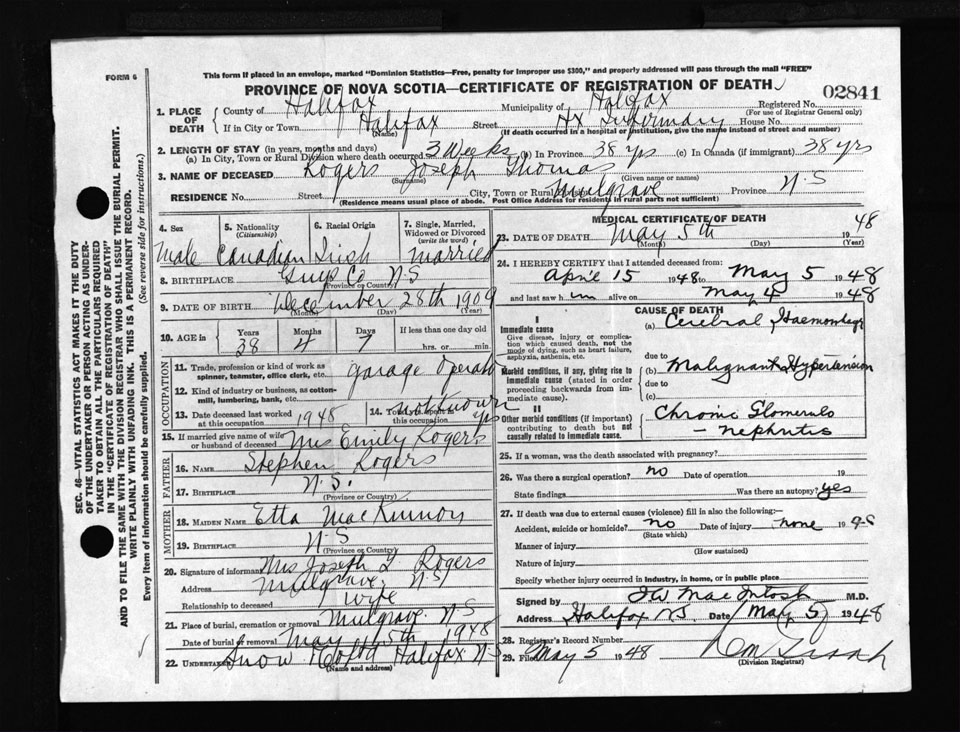 This form if placed in an envelope, marked "Dominion Statistics—Free, penalty for improper use $300," and properly addressed will pass through the mail "FREE"
FORM 6
PROVINCE OF NOVA SCOTIA—CERTIFICATE OF REGISTRATION OF DEATH
02841
1. PLACE OF DEATH
County of Halifax Municipality of Halifax Registered No.
(For use of Registrar General only)
If in City or Town Halifax Street Hx Infirmary House No.
(Name) (If death occurred in a hospital or institution, give the name instead of street and number)
2. LENGTH OF STAY (in years, months and days)
(a) In City, Town or Rural Division where death occurred 3 Weeks (b) In Province 38 yrs (c) In Canada (if immigrant) 38 yrs
3. NAME OF DECEASED Rogers Joseph Thomas
(Surname) (Given name or names)
RESIDENCE No. Street City, Town or Rural Mulgrave Province N.S
(Residence means usual place of abode. Post Office Address for residents in rural parts not sufficient)
SEC. 46—VITAL STATISTICS ACT MAKES IT THE DUTY
OF THE UNDERTAKER OR PERSON ACTING AS UNDERTAKER TO OBTAIN ALL THE PARTICULARS REQUIRED
IN THE "CERTIFICATE OF REGISTRATION OF DEATH"
AND TO FILE THE SAME WITH THE DIVISION REGISTRAR WHO SHALL ISSUE THE BURIAL PERMIT.
WRITE PLAINLY WITH UNFADING INK. THIS IS A PERMANENT RECORD.
Every item of information should be carefully supplied. (See reverse side for instructions.)
4. Sex 5. Nationality (Citizenship) 6. Racial Origin 7. Single, Married, Widowed or Divorced (write the word)
Male Canadian Irish Married
8. BIRTHPLACE Guys Co N S
(Province or Country)
9. DATE OF BIRTH December 28th 1909
(Month) (Day) (Year)
10. AGE in Years Months Days If less than one day old
38 4 7 hrs. or min.
OCCUPATION
11. Trade, profession or kind of work as spinner, teamster, office clerk, etc. Garage Operator
12. Kind of industry or business, as cotton-mill, lumbering, bank, etc.
13. Date deceased last worked at this occupation 1948
14. Total yrs spent in this occupation not known yrs
15. If married give name of wife or husband of deceased Mrs Emily Rogers
FATHER
16. NAME Stephen Rogers
17. BIRTHPLACE N.S.
(Province or Country)
MOTHER
18. MAIDEN NAME Etta MacKinnon
19. BIRTHPLACE N S
(Province or Country)
20. Signature of informant Mrs Joseph T Rogers
Address Mulgrave, N S
Relationship to deceased Wife
21. Place of burial, cremation or removal Mulgrave. N S
Date of burial or removal May 5th 1948
22. Undertaker Snow Halifax N S
(Name and address)
MEDICAL CERTIFICATE OF DEATH
23. DATE OF DEATH May 5th 1948
(Month) (Day) (Year)
24. I HEREBY CERTIFY that I attended deceased from:
April 15 1948 to May 5 1948
and last saw him alive on May 4 1948
CAUSE OF DEATH
I
Immediate cause
Give disease, injury or complication which caused death, not the mode of dying, such as heart failure, asphyxia, asthenia, etc.
(a) Cerebral Haemorrhage
due to
Morbid conditions, if any, giving rise to immediate cause (stated in order proceeding backwards from immediate cause).
(b) Malignant Hypertension
due to
(c)
II
Other morbid conditions (if important) contributing to death but not causally related to immediate cause.
Chronic Glomerulo
- nephritis
25. If a woman, was the death associated with pregnancy?
26. Was there a surgical operation? no Date of operation 19
State findings Was there an autopsy? yes
27. If death was due to external causes (violence) fill in also the following:—
Accident, suicide or homicide? no Date of injury none 19
(State which)
Manner of injury
(How sustained)
Nature of injury
Specify whether injury occurred in industry, in home, or in public place
Signed by MacIntosh M.D.
Address Halifax N.S. Date May 5 1948
28. Registrar's Record Number
29. Filed May 5 1948
(Division Registrar)